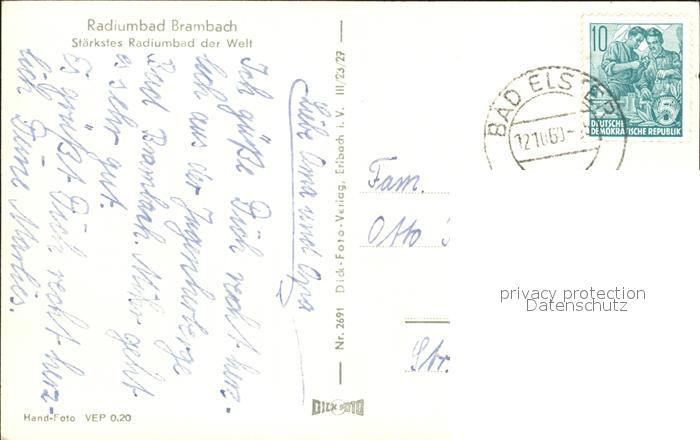 Radiumbad Brambach
Stärkstes Radiumbad der Welt
Liebe Oma und Opa
Ich grüße Dich recht herz-
lich aus der Jugendherberge
Bad Brambach. Mir geht
es sehr gut.
Es grüßt Dich recht herz-
lich Deine Marlies.
Hand-Foto VEP 0,20
Nr. 2691 Dick-Foto-Verlag, Erlbach i. V. III/26/27
DICK FOTO
10
5
DEUTSCHE
DEMOKRATISCHE REPUBLIK
BAD ELSTER
12.10.60
Fam.
Otto
Str.
privacy protection
Datenschutz